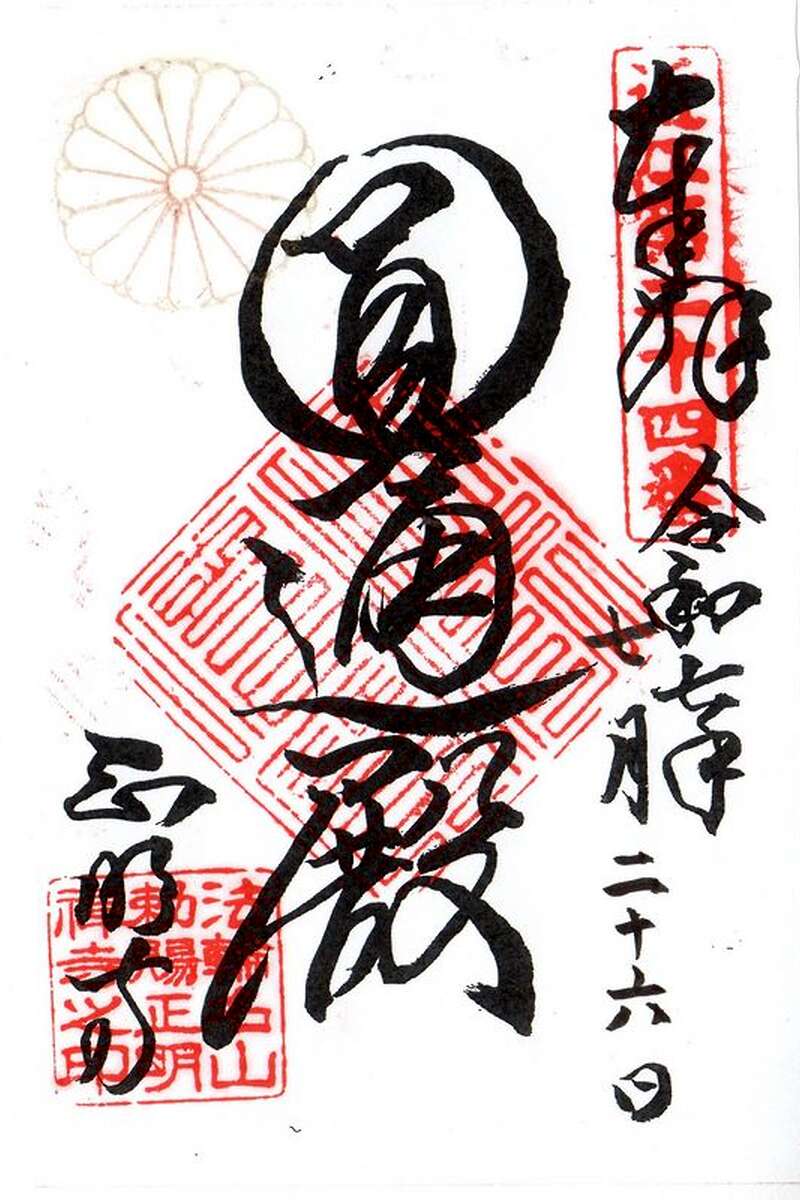 奉拝
二十四番
令和七年
七月二十六日
圓通殿
正明寺
法輪 山
勅賜正明
禅寺之印